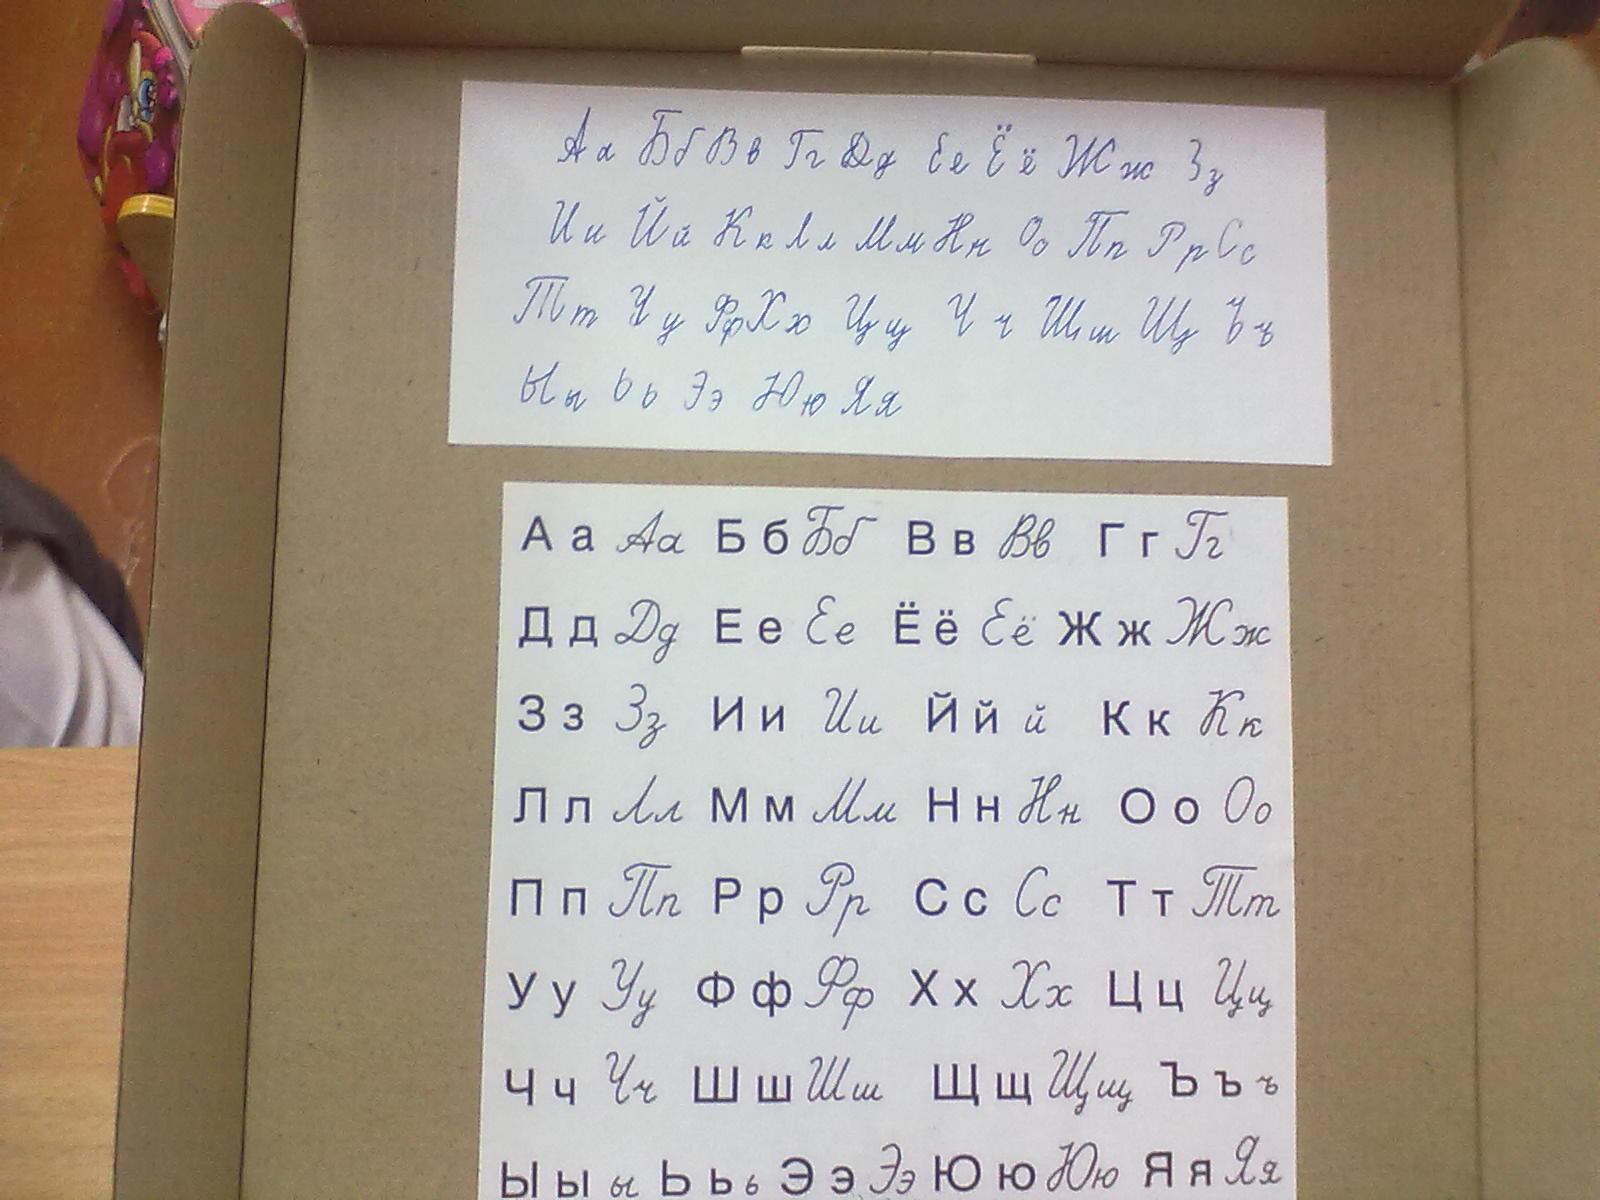 Аа Бб Вв Гг Дд Ее Ёё Жж Зз
Ии Йй Кк Лл Мм Нн Оо Пп Рр Сс
Тт Уу Фф Хх Цц Чч Шш Щ Ъъ
Ыы Ьь Ээ Юю Яя
А а Аа Б б Бб В в Вв Г г Гг
Д д Дд Е е Ее Ё ё Её Ж ж Жж
З з Зз И и Ии Й й й К к Кк
Л л Лл М м Мм Н н Нн О о Оо
П п Пп Р р Рр С с Сс Т т Тт
У у Уу Ф ф Фф Х х Хх Ц ц Цц
Ч ч Чч Ш ш Шш Щ щ Щщ Ъ ъ ъ
Ы ы ы Ь ь ь Э э Ээ Ю ю Юю Я я Яя